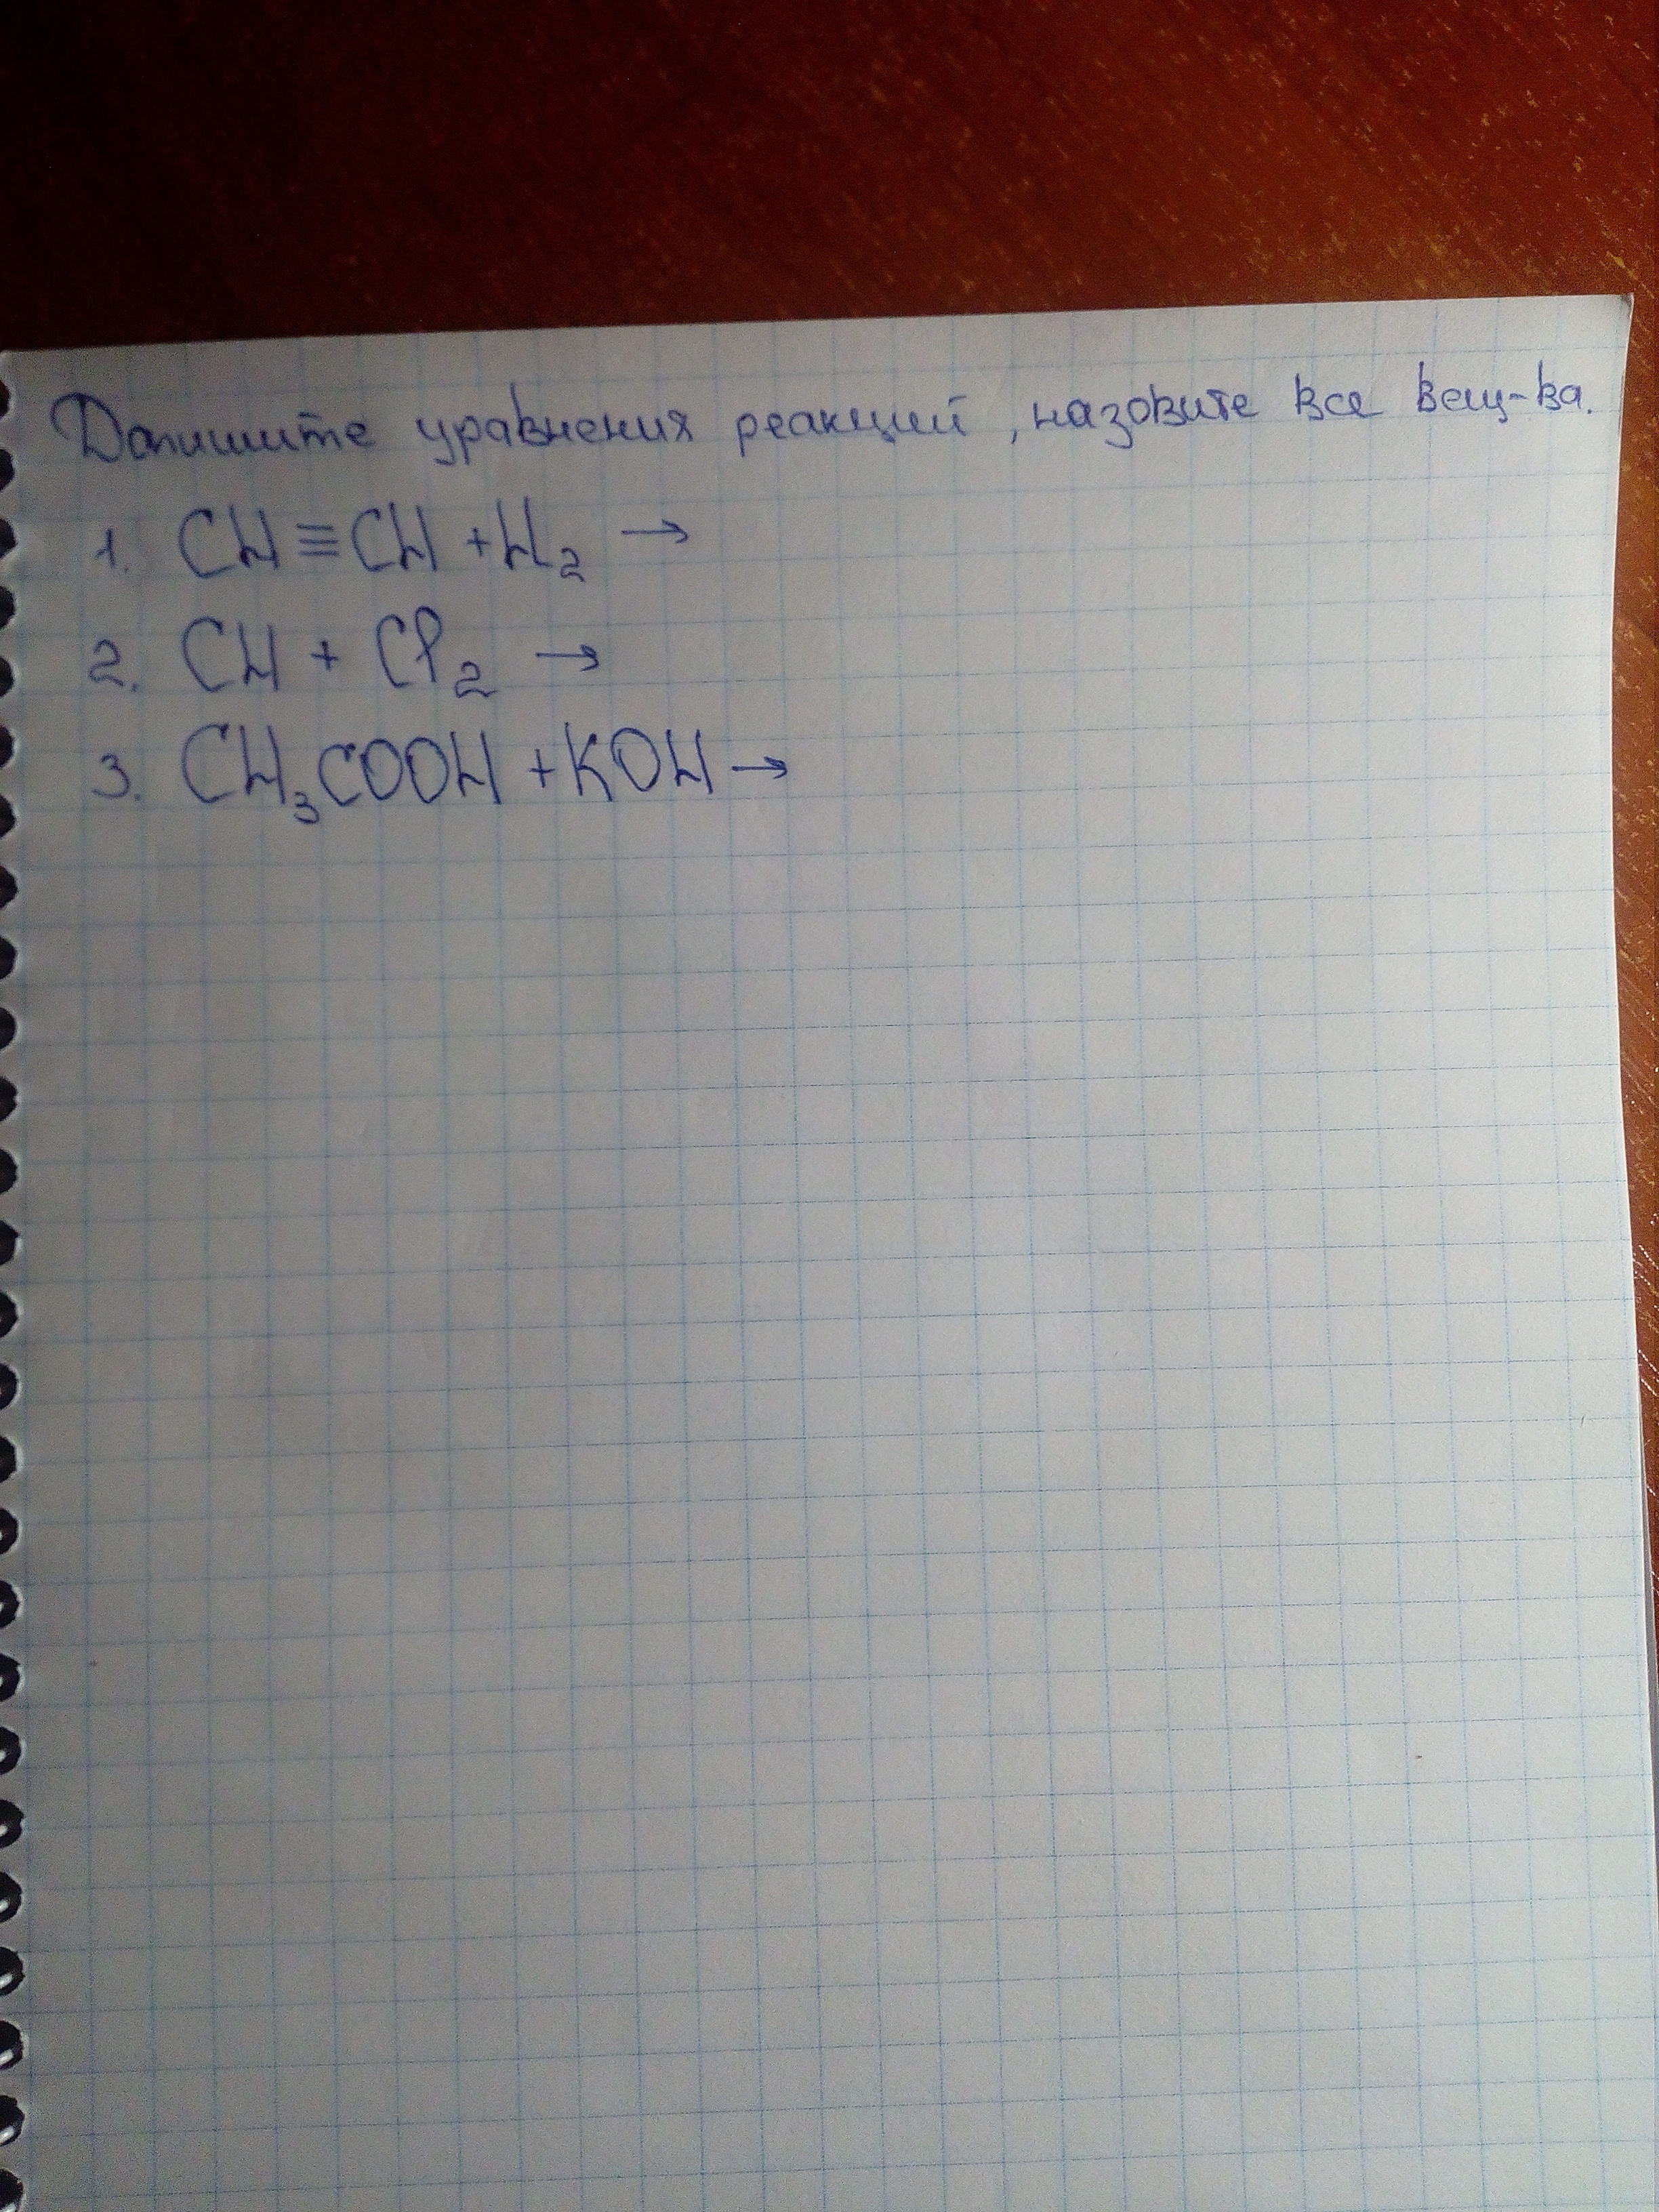 Допишите уравнения реакций, назовите все вещ-ва.
1. CH≡CH + H₂ →
2. CH + Cl₂ →
3. CH₃COOH + KOH →